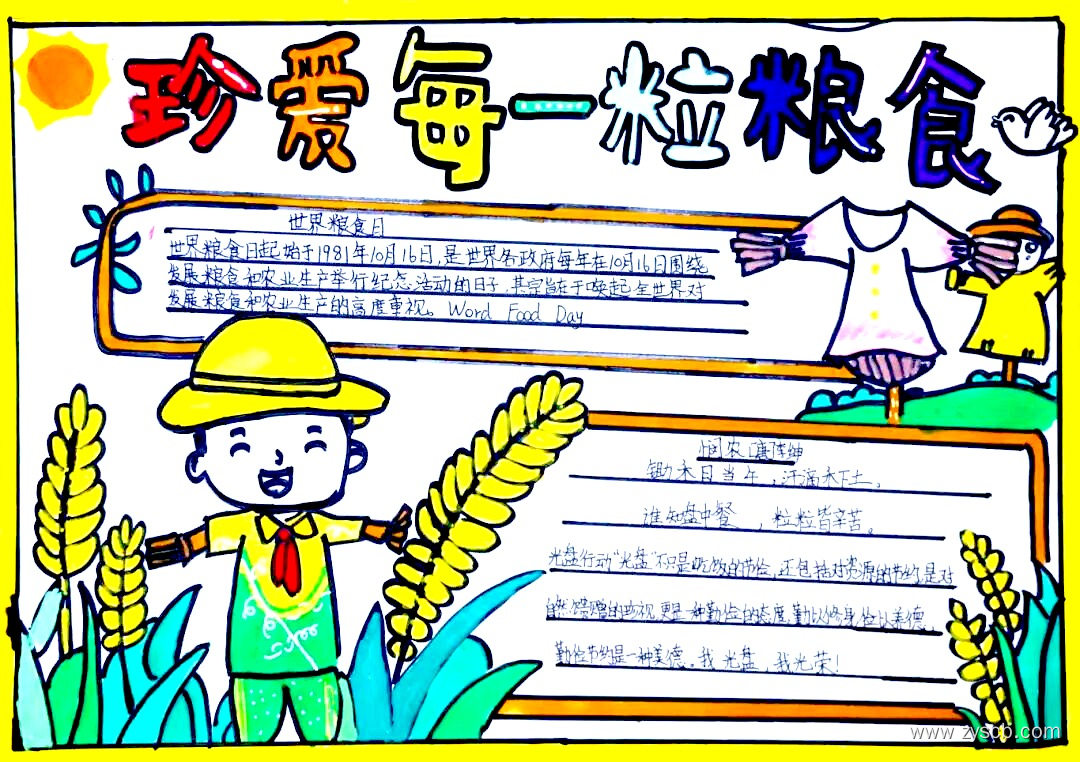 珍爱每一粒粮食
世界粮食日
世界粮食日起始于1981年10月16日,是世界各政府每年在10月16日围绕
发展粮食和农业生产举行纪念活动的日子,其宗旨在于唤起全世界对
发展粮食和农业生产的高度重视。Word Food Day
悯农
锄禾日当午,汗滴禾下土,
谁知盘中餐,粒粒皆辛苦。
光盘行动"光盘"不只是吃饭的节俭,还包括对资源的节约,是对
自然馈赠的珍视,更是一种勤俭的态度,勤以修身,俭以养德,
勤俭节约是一种美德。我光盘,我光荣!
www.zyscb.com